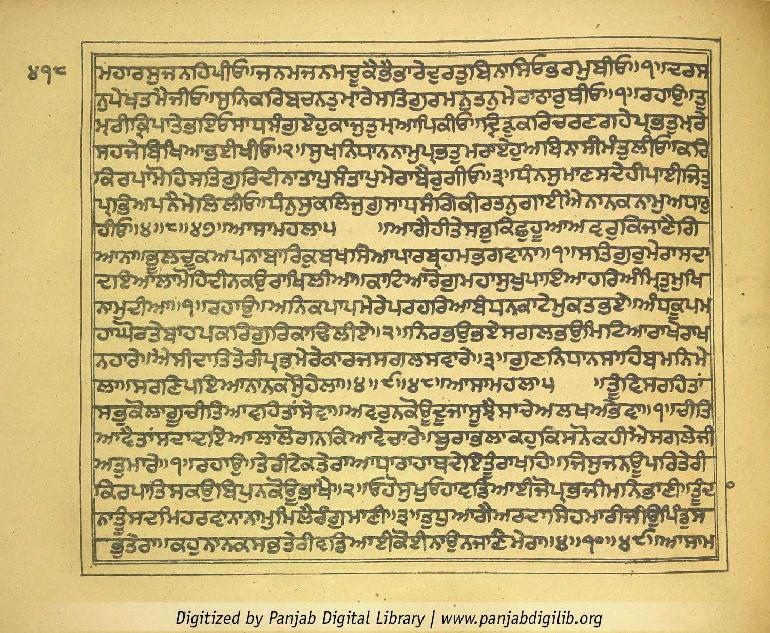 ੪੧੮
ਮਹਾਰਸੁਜਨਹਿਪੀਓ॥ਜਨਮਜਨਮਚੂਕੇਭੈਭਾਰੇਦੁਰਤੁਬਿਨਾਸਿਓਭਰਮੁਬੀਓ॥੧॥ਦਰਸ
ਨੁਪੇਖਤਮੈਜੀਓ॥ਸੁਨਿਕਰਿਬਚਨਤੁਮਾਰੇਸਤਿਗੁਰਮਨੁਤਨੁਮੇਰਾਠਾਰੁਥੀਓ॥੧॥ਰਹਾਉ॥ਤੁ
ਮਰੀਕ੍ਰਿਪਾਤੇਭਇਓਸਾਧਸੰਗੁਏਹੁਕਾਜੁਤੁਮਆਪਿਕੀਓ॥ਦ੍ਰਿੜੁਕਰਿਚਰਣਗਹੇਪ੍ਰਭਤੁਮਰੇ
ਸਹਜੇਬਿਖਿਆਭਈਖੀਓ॥੨॥ਸੁਖਨਿਧਾਨਨਾਮੁਪ੍ਰਭਤੁਮਰਾਏਹੁਅਬਿਨਾਸੀਮੰਤੁਲੀਓ॥ਕਰਿ
ਕਿਰਪਾਮੋਹਿਸਤਿਗੁਰਿਦੀਨਾਤਾਪੁਸੰਤਾਪੁਮੇਰਾਬੈਰੁਗੀਓ॥੩॥ਧੰਨੁਸੁਮਾਣਸਦੇਹੀਪਾਈਜਿਤੁ
ਪ੍ਰਭਿਅਪਨੈਮੇਲਿਲੀਓ॥ਧੰਨੁਸੁਕਲਿਜੁਗੁਸਾਧਸੰਗਿਕੀਰਤਨੁਗਾਈਐਨਾਨਕਨਾਮੁਅਧਾਰੁ
ਹੀਓ॥੪॥੮॥੪੭॥ਆਸਾਮਹਲਾ੫ ॥ਆਗੈਹੀਤੇਸਭੁਕਿਛੁਹੂਆਅਵਰੁਕਿਜਾਣੈਗਿ
ਆਨਾ॥ਭੂਲਚੂਕਅਪਨਾਬਾਰਿਕੁਬਖਸਿਆਪਾਰਬ੍ਰਹਮਭਗਵਾਨਾ॥੧॥ਸਤਿਗੁਰੁਮੇਰਾਸਦਾ
ਦਇਆਲਾਮੋਹਿਦੀਨਕਉਰਾਖਿਲੀਆ॥ਕਾਟਿਆਰੋਗੁਮਹਾਸੁਖੁਪਾਇਆਹਰਿਅੰਮ੍ਰਿਤੁਮੁਖਿ
ਨਾਮੁਦੀਆ॥੧॥ਰਹਾਉ॥ਅਨਿਕਪਾਪਮੇਰੇਪਰਹਰਿਆਬੰਧਨਕਾਟੇਮੁਕਤਭਏ॥ਅੰਧਕੂਪਮ
ਹਾਘੋਰਤੇਬਾਹਪਕਰਿਗੁਰਿਕਾਢਿਲੀਏ॥੨॥ਨਿਰਭਉਭਏਸਗਲਭਉਮਿਟਿਆਰਾਖੇਰਾਖ
ਨਹਾਰੇ॥ਐਸੀਦਾਤਿਤੇਰੀਪ੍ਰਭਮੇਰੇਕਾਰਜਸਗਲਸਵਾਰੇ॥੩॥ਗੁਣਨਿਧਾਨਸਾਹਿਬਮਨਿਮੇ
ਲਾ॥ਸਰਣਿਪਇਆਨਾਨਕਸੋੁਹੇਲਾ॥੪॥੯॥੪੮॥ਆਸਾਮਹਲਾ੫ ॥ਤੂੰਵਿਸਰਹਿਤਾਂ
ਸਭੁਕੋਲਾਗੂਚੀਤਿਆਵਹਿਤਾਂਸੇਵਾ॥ਅਵਰੁਨਕੋਊਦੂਜਾਸੂਝੈਸਾਚੇਅਲਖਅਭੇਵਾ॥੧॥ਚੀਤਿ
ਆਵੈਤਾਂਸਦਾਦਇਆਲਾਲੋਗਨਕਿਆਵੇਚਾਰੇ॥ਬੁਰਾਭਲਾਕਹੁਕਿਸਨੋਕਹੀਐਸਗਲੇਜੀ
ਅਤੁਮਾਰੇ॥੧॥ਰਹਾਉ॥ਤੇਰੀਟੇਕਤੇਰਾਆਧਾਰਾਹਾਥਦੇਇਤੂੰਰਾਖਹਿ॥ਜਿਸੁਜਨਊਪਰਿਤੇਰੀ
ਕਿਰਪਾਤਿਸਕਉਬਿਪੁਨਕੋਊਭਾਖੈ॥੨॥ਓਹੋਸੁਖੁਓਹਾਵਡਿਆਈਜੋਪ੍ਰਭਜੀਮਨਿਭਾਣੀ॥ਤੂੰਦ
ਨਾਤੂੰਸਦਮਿਹਰਵਾਨਾਨਾਮੁਮਿਲੈਰੰਗੁਮਾਣੀ॥੩॥ਤੁਧੁਆਗੈਅਰਦਾਸਿਹਮਾਰੀਜੀਉਪਿੰਡੁਸ
ਭੁਤੇਰਾ॥ਕਹੁਨਾਨਕਸਭਤੇਰੀਵਡਿਆਈਕੋਈਨਾਉਨਜਾਣੈਮੇਰਾ॥੪॥੧੦॥੪੯॥ਆਸਾਮ
Digitized by Panjab Digital Library | www.panjabdigilib.org